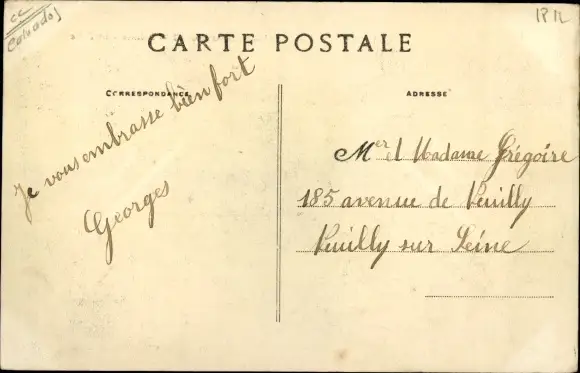 cc
Calvados
CARTE POSTALE
CORRESPONDANCE
ADRESSE
Je vous embrasse bien fort
Georges
Mer et Madame Grégoire
185 avenue de Neuilly
Neuilly sur Seine